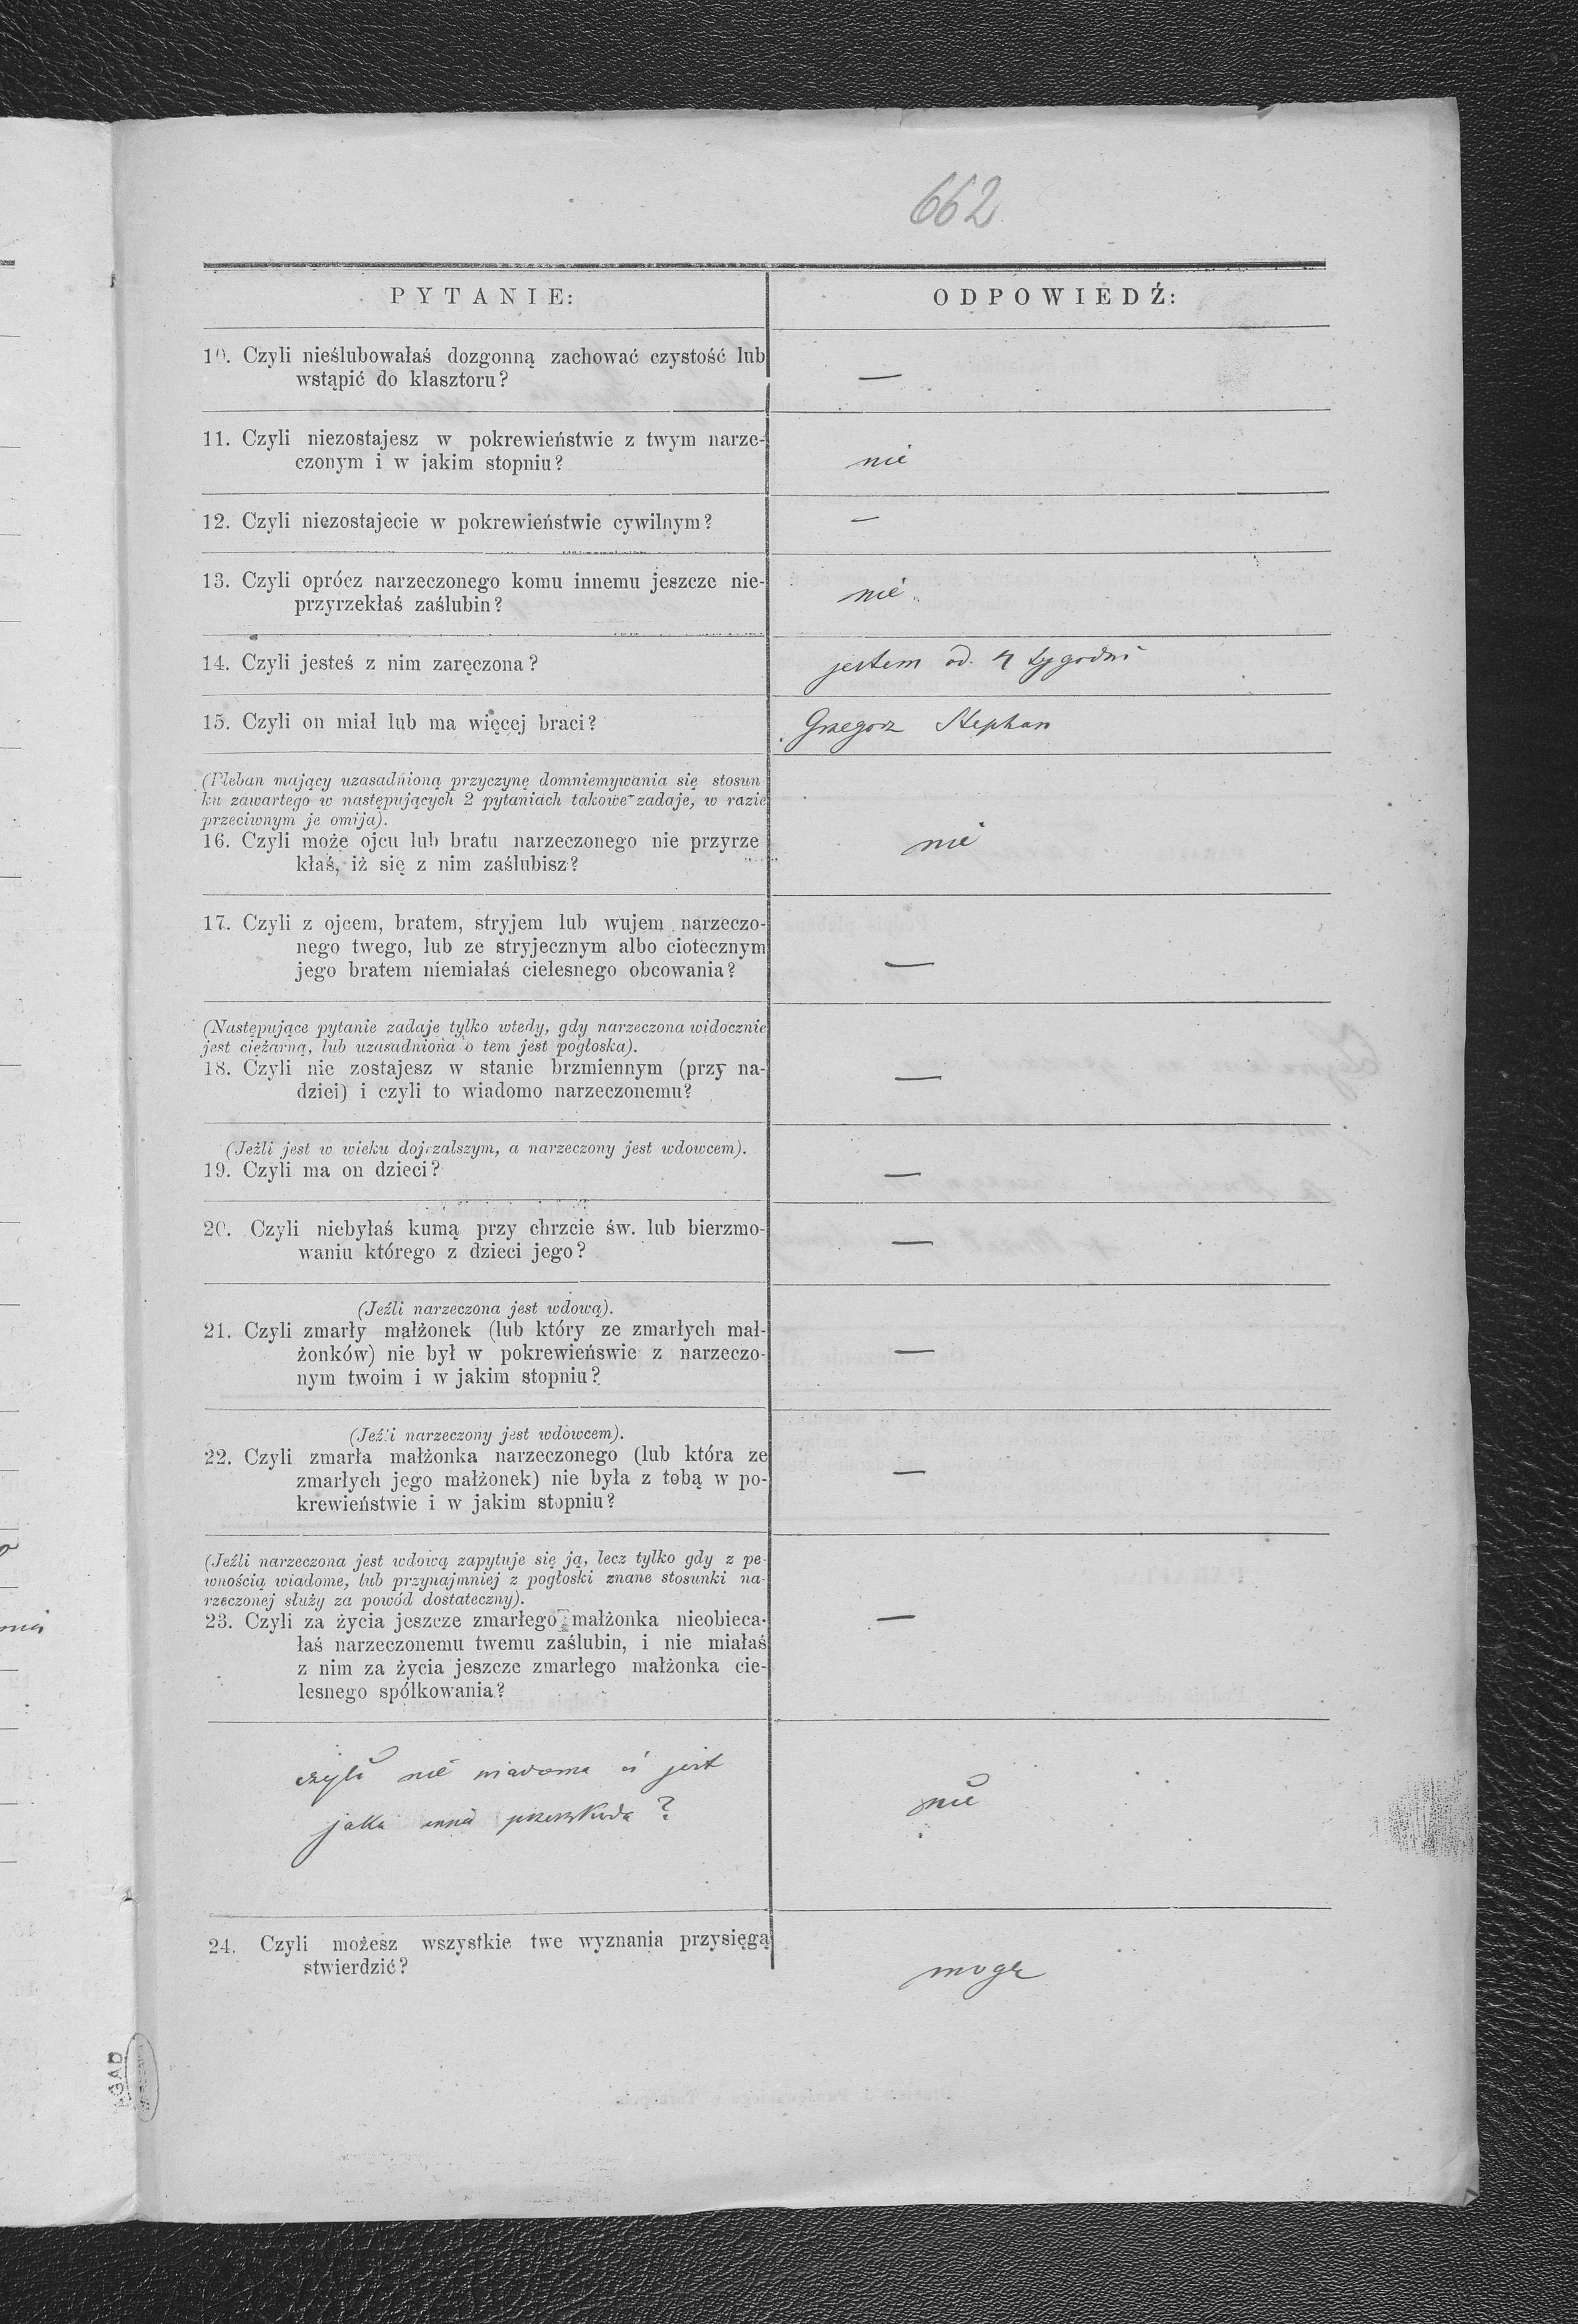 662
PYTANIE:
ODPOWIEDŹ:
10. Czyli nieślubowałaś dozgonną zachować czystość lub
wstąpić do klasztoru?
—
11. Czyli niezostajesz w pokrewieństwie z twym narze-
czonym i w jakim stopniu?
nie
12. Czyli niezostajecie w pokrewieństwie cywilnym?
—
13. Czyli oprócz narzeczonego komu innemu jeszcze nie-
przyrzekłaś zaślubin?
nie
14. Czyli jesteś z nim zaręczona?
jestem od 4 tygodni
15. Czyli on miał lub ma więcej braci?
Grzegorz Stephan
(Pleban mający uzasadnioną przyczynę domniemywania się stosun
ku zawartego w następujących 2 pytaniach takowe zadaje, w razie
przeciwnym je omija).
16. Czyli może ojcu lub bratu narzeczonego nie przyrze
kłaś, iż się z nim zaślubisz?
nie
17. Czyli z ojcem, bratem, stryjem lub wujem narzeczo-
nego twego, lub ze stryjecznym albo ciotecznym
jego bratem niemiałaś cielesnego obcowania?
—
(Następujące pytanie zadaje tylko wtedy, gdy narzeczona widocznie
jest ciężarną, lub uzasadniona o tem jest pogłoska).
18. Czyli nie zostajesz w stanie brzmiennym (przy na-
dziei) i czyli to wiadomo narzeczonemu?
—
(Jeżli jest w wieku dojrzalszym, a narzeczony jest wdowcem).
19. Czyli ma on dzieci?
—
20. Czyli niebyłaś kumą przy chrzcie św. lub bierzmo-
waniu którego z dzieci jego?
—
(Jeźli narzeczona jest wdową).
21. Czyli zmarły małżonek (lub który ze zmarłych mał-
żonków) nie był w pokrewieńswie z narzeczo-
nym twoim i w jakim stopniu?
—
(Jeźli narzeczony jest wdowcem).
22. Czyli zmarła małżonka narzeczonego (lub która ze
zmarłych jego małżonek) nie była z tobą w po-
krewieństwie i w jakim stopniu?
—
(Jeźli narzeczona jest wdową zapytuje się ją, lecz tylko gdy z pe-
wnością wiadome, lub przynajmniej z pogłoski znane stosunki na-
rzeczonej służy za powód dostateczny).
23. Czyli za życia jeszcze zmarłego małżonka nieobieca-
łaś narzeczonemu twemu zaślubin, i nie miałaś
z nim za życia jeszcze zmarłego małżonka cie-
lesnego spółkowania?
—
czyli nie wiadoma ci jest
jaka inna przeszkoda?
nie
24. Czyli możesz wszystkie twe wyznania przysięgą
stwierdzić?
mogę
AGAD